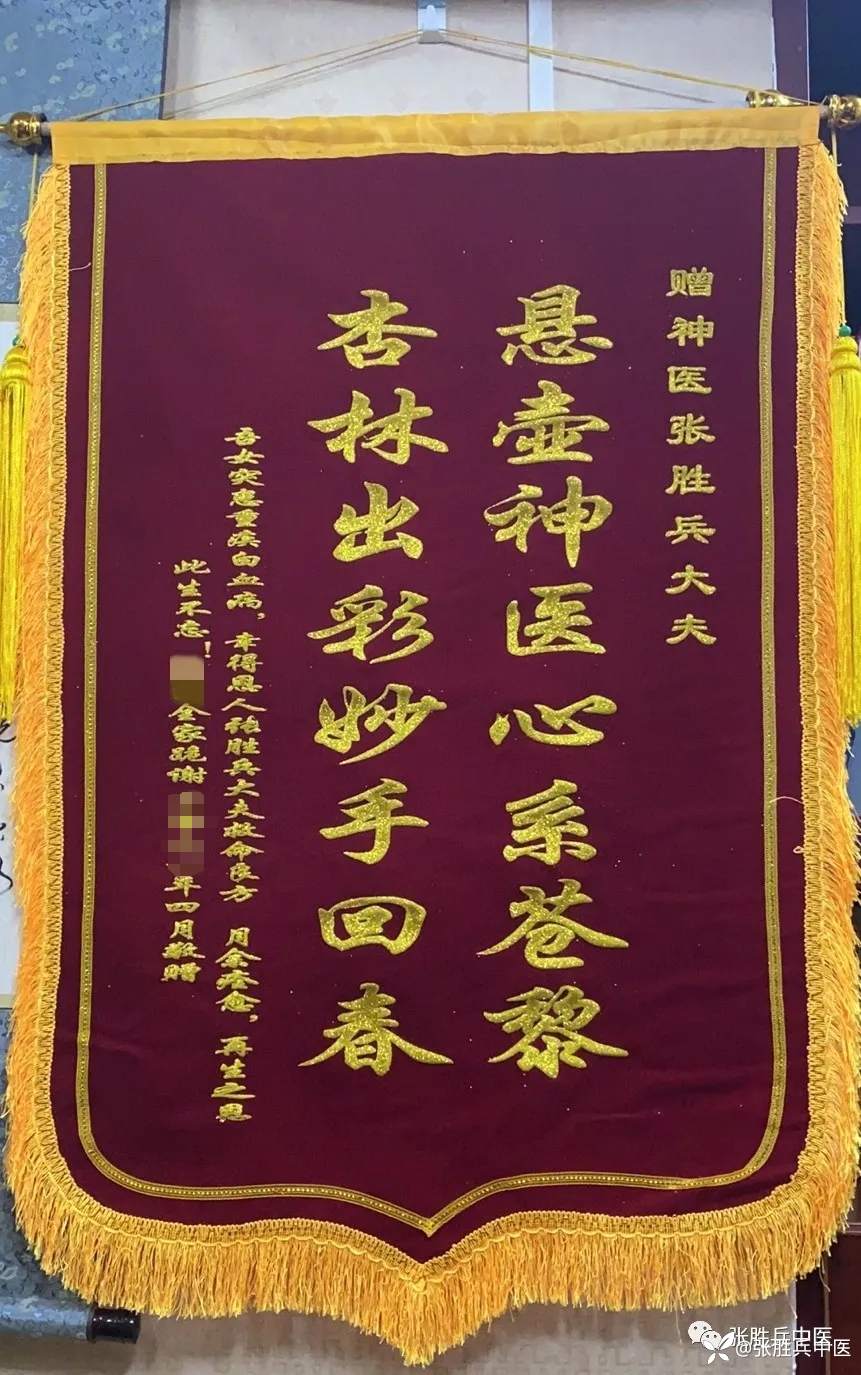 赠神医张胜兵大夫
悬壶神医心系苍黎
杏林出彩妙手回春
吾女突患重疾白血病，幸得恩人张胜兵大夫救命良方 月余痊愈，再生之恩
此生不忘！
全家跪谢 年四月敬赠
张胜兵中医
@张胜兵中医